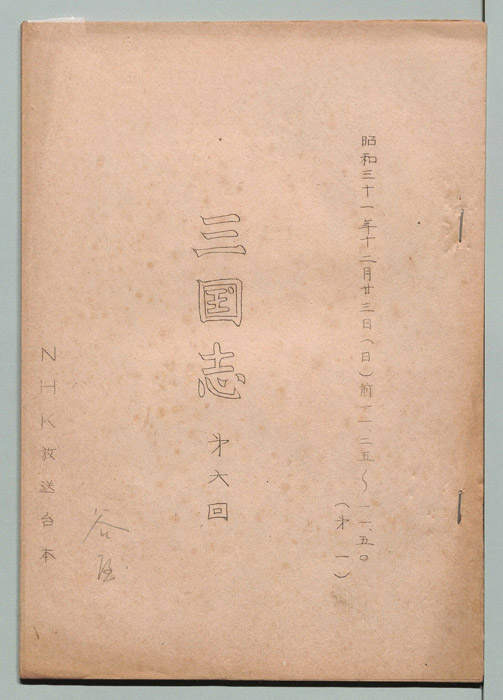 昭和三十一年十二月廿三日（日）前一一、二五〜一一、五〇
（才一）
三国志 才六回
谷
NHK放送台本